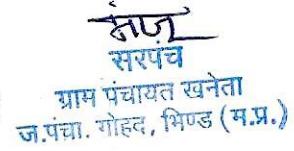 मंजू
सरपंच
ग्राम पंचायत खनेता
ज.पंचा. गोहद, भिण्ड (म.प्र.)